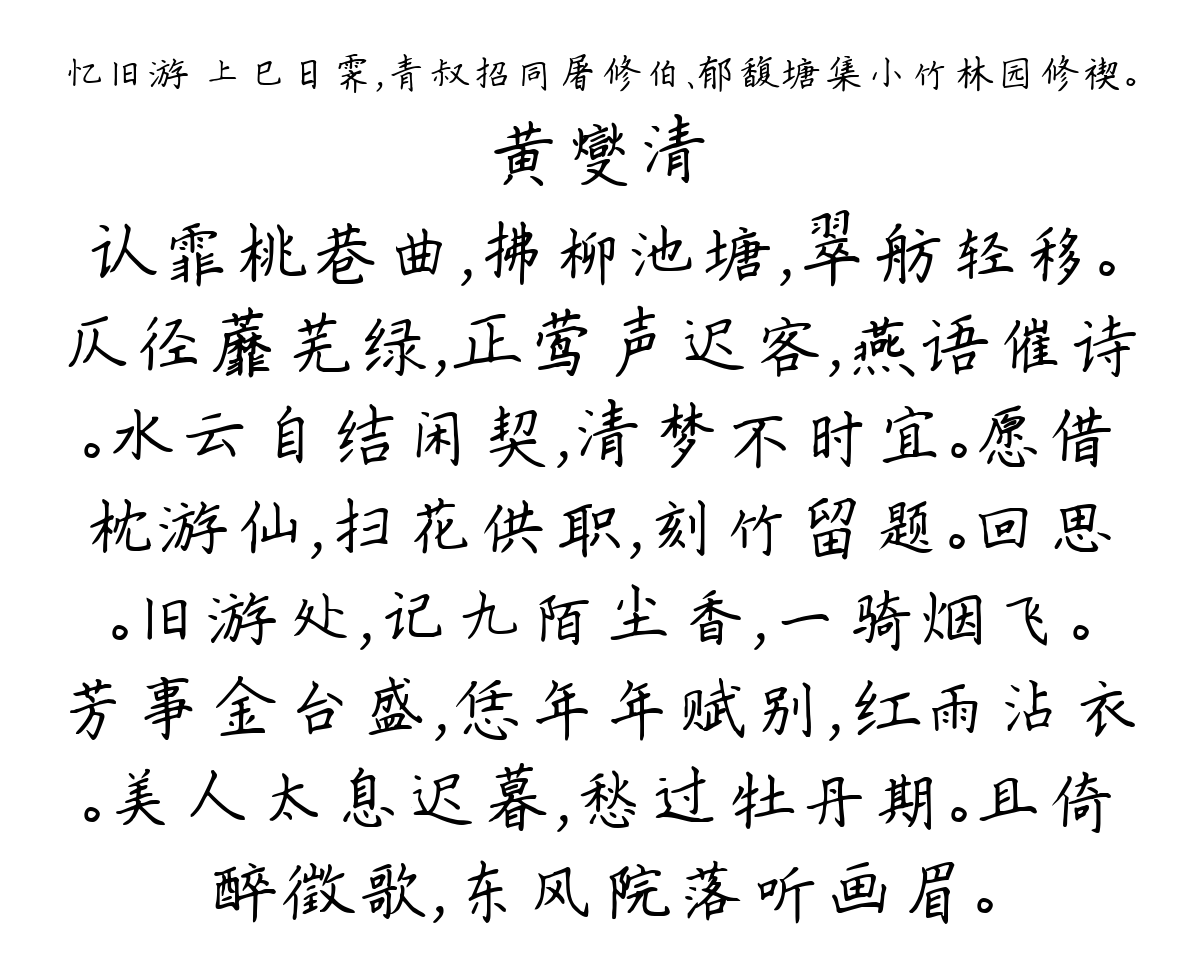 忆旧游 上巳日霁,青叔招同屠修伯、郁馥塘集小竹林园修禊。
黄燮清
认霏桃巷曲,拂柳池塘,翠舫轻移。
仄径蘼芜绿,正莺声迟客,燕语催诗
。水云自结闲契,清梦不时宜。愿借
枕游仙,扫花供职,刻竹留题。回思
。旧游处,记九陌尘香,一骑烟飞。
芳事金台盛,恁年年赋别,红雨沾衣
。美人太息迟暮,愁过牡丹期。且倚
醉徵歌,东风院落听画眉。